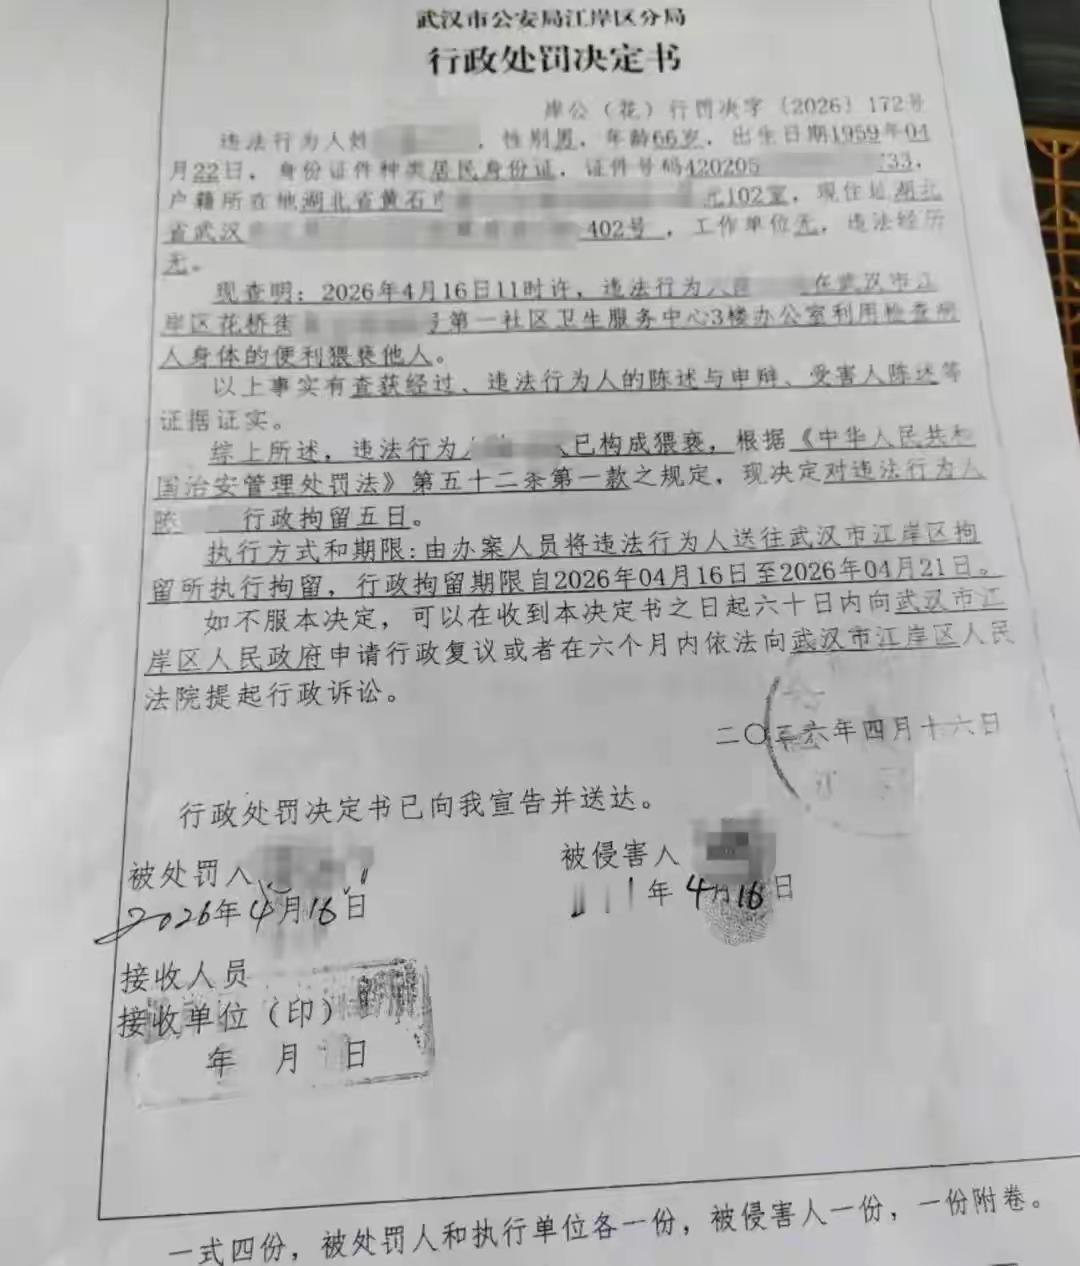 武汉市公安局江岸区分局
行政处罚决定书
岸公（花）行罚决字〔2026〕172号
违法行为人姓，性别男，年龄66岁，出生日期1959年04
月22日，身份证件种类居民身份证，证件号码420205 33，
户籍所在地湖北省黄石 元102室，现住址湖北
省武汉 402号，工作单位无，违法经历
无。
现查明：2026年4月16日11时许，违法行为人 在武汉市江
岸区花桥街 号第一社区卫生服务中心3楼办公室利用检查病
人身体的便利猥亵他人。
以上事实有查获经过、违法行为人的陈述与申辩、受害人陈述等
证据证实。
综上所述，违法行为人 已构成猥亵，根据《中华人民共和
国治安管理处罚法》第五十二条第一款之规定，现决定对违法行为人
陈 行政拘留五日。
执行方式和期限:由办案人员将违法行为人送往武汉市江岸区拘
留所执行拘留，行政拘留期限自2026年04月16日至2026年04月21日。
如不服本决定，可以在收到本决定书之日起六十日内向武汉市江
岸区人民政府申请行政复议或者在六个月内依法向武汉市江岸区人民
法院提起行政诉讼。
二〇二六年四月十六日
行政处罚决定书已向我宣告并送达。
被处罚人
2026年4月16日
被侵害人
年4月16日
接收人员
接收单位（印）
年 月 日
一式四份，被处罚人和执行单位各一份，被侵害人一份，一份附卷。